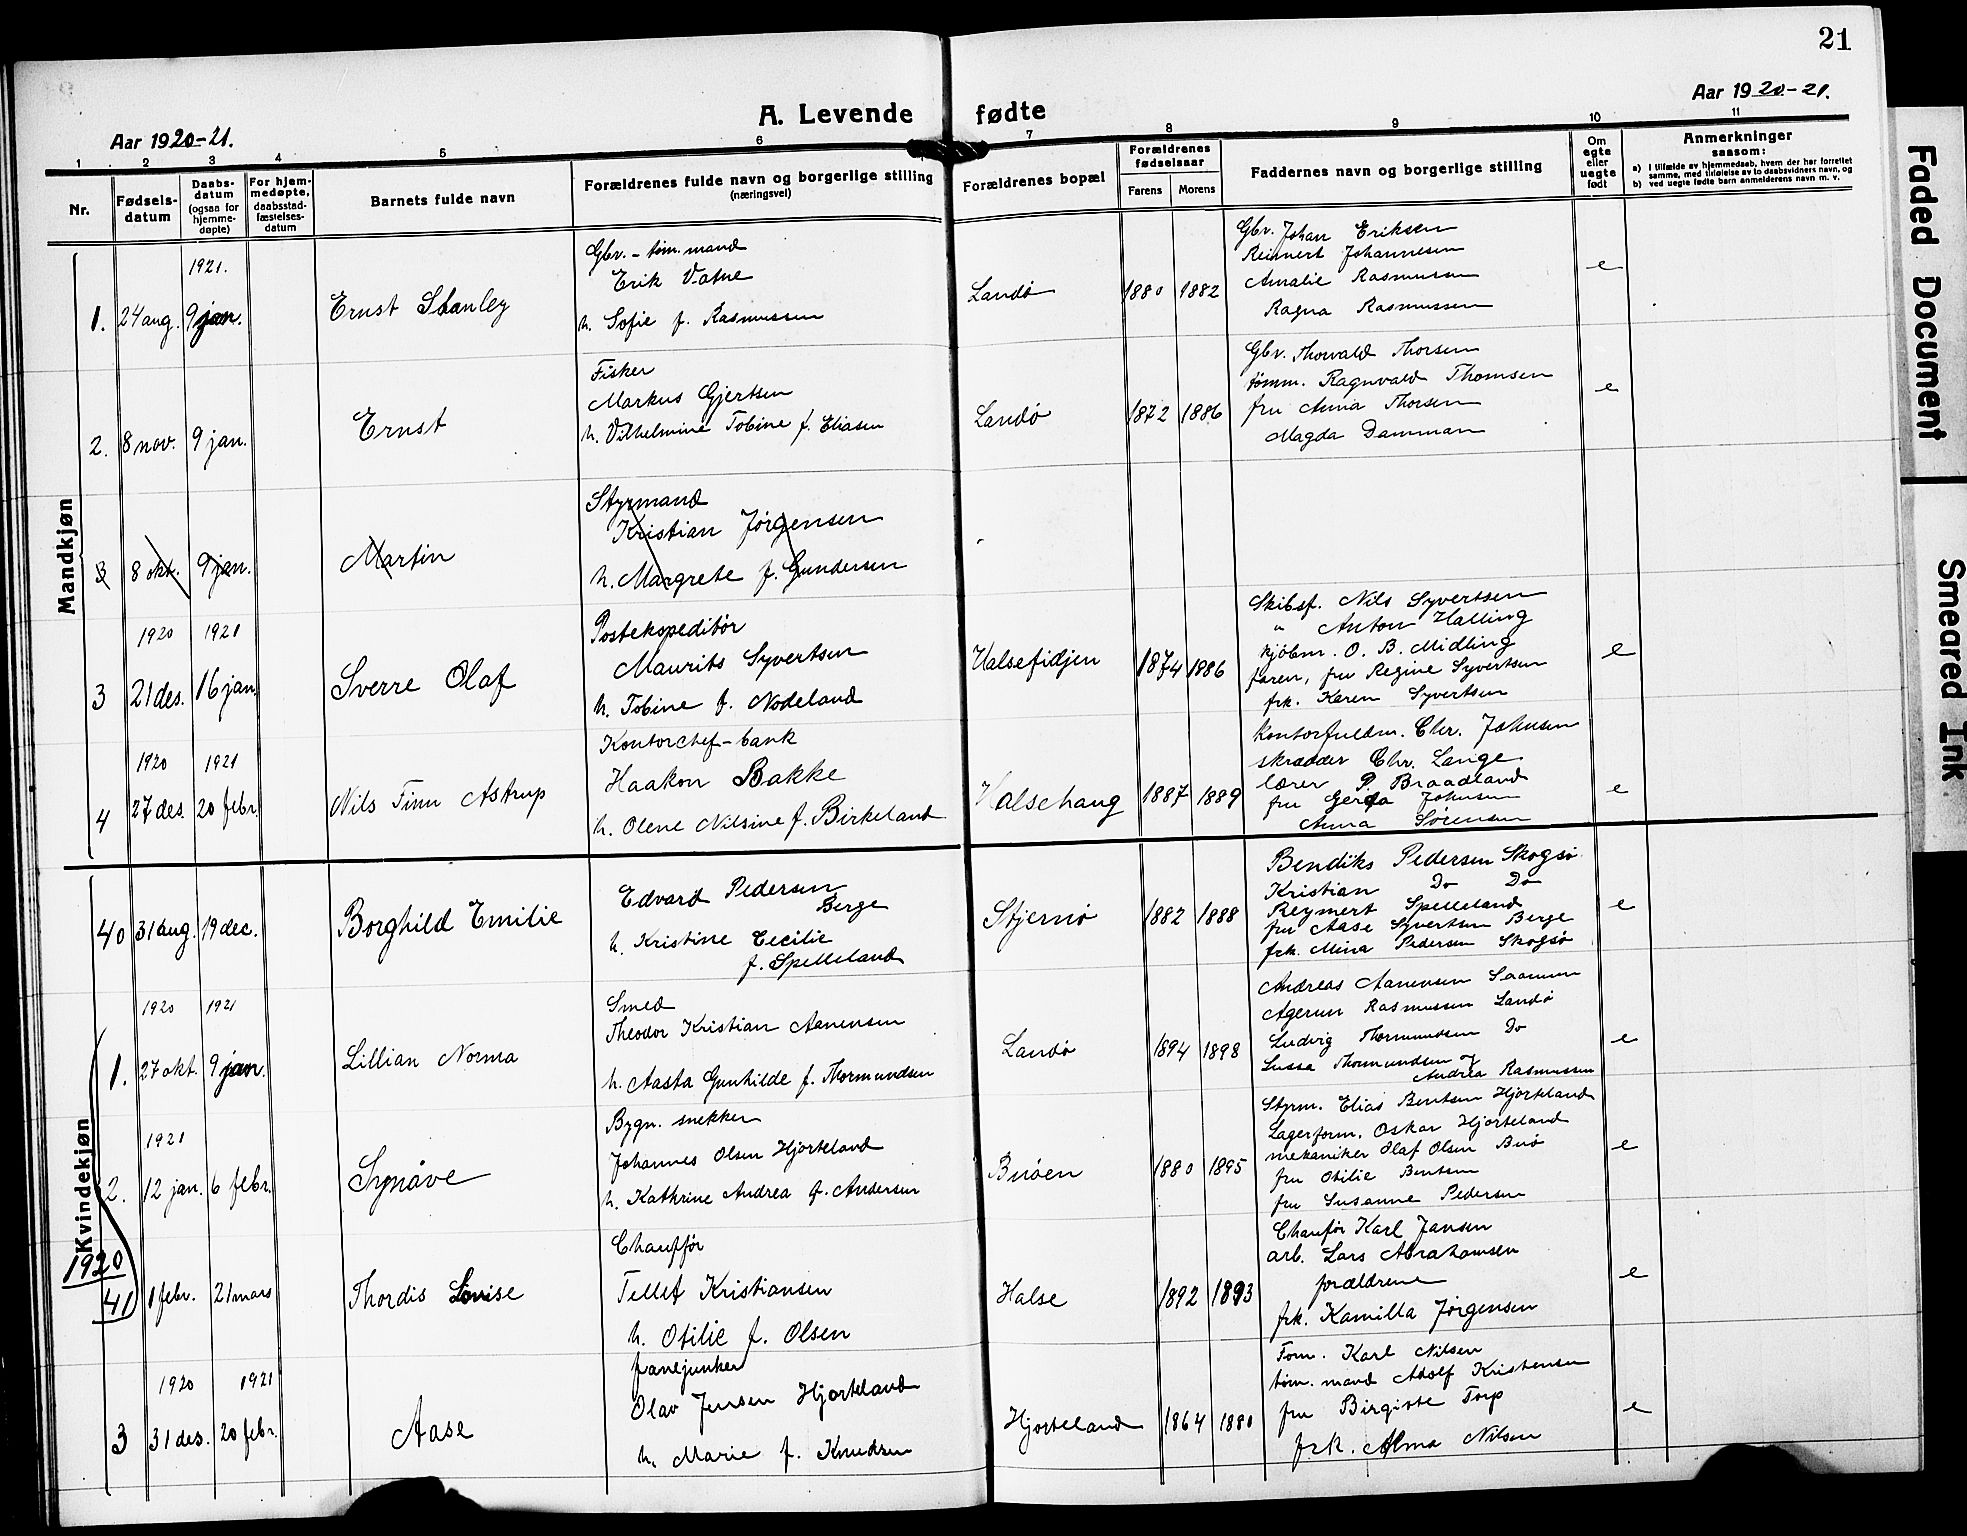 21
Aar 1920-21.
A. Levende fødte
Aar 1920-21.
1 2 3 4 5 6 7 8 9 10 11
Nr.
Fødsels-
datum
Daabs-
datum
(ogsaa for
hjemme-
døpte)
For hjem-
medøpte,
daabsstad-
fæstelses-
datum
Barnets fulde navn
Forældrenes fulde navn og borgerlige stilling
(næringsvei)
Forældrenes bopæl
Forældrenes
fødselsaar
Farens Morens
Faddernes navn og borgerlige stilling
Om
egte
eller
uegte
født
Anmerkninger
saasom:
a) i tilfælde av hjemmedaab, hvem der har forrettet
samme, med tilføielse av to daabsvidners navn, og
b) ved uegte fødte barn anmelderens navn m. v.
Mandkjøn
1921.
1. 24 aug. 9 jan. Ernst Stanley
Gbr. - tøm. mand
Erik Vatne
h. Sofie f. Rasmussen
Landø 1880 1882
Gbr. Johan Eriksen
Reinert Johannesen
Amalie Rasmussen
Ragna Rasmussen
e
2. 8 nov. 9 jan. Ernst
Fisker
Markus Gjertsen
h. Vilhelmine Tobine f. Eliasen
Landø 1872 1886
Gbr. Thorvald Thorsen
tømm. Ragnvald Thomsen
fru Anna Thorsen
Magda Damman
e
3 8 okt. 9 jan. Martin
Styrmand
Kristian Jørgensen
h. Margrete f. Gundersen
1920 1921
3 21 des. 16 jan. Sverre Olaf
Postekspeditør
Maurits Syvertsen
h. Tobine f. Nodeland
Halsefidjen 1874 1886
Skibsf. Nils Syvertsen
" Anton Halling
kjøbm. O. B. Midling
faren, fru Regine Syvertsen
frk. Karen Syvertsen
e
1920 1921
4 27 des. 20 febr. Nils Finn Astrup
Kontorchef - bank
Haakon Bakke
h. Olene Nilsine f. Birkeland
Halsehaug 1887 1889
Kontorfuldm. Chr. Johnsen
skrædder Chr. Lange
lærer P. Braadland
fru Gerda Johnsen
Anna Sørensen
e
Kvindekjøn
40 31 aug. 19 dec. Borghild Emilie
Edvard Pedersen
Berge
h. Kristine Cecilie
f. Spilleland
Stjernø 1882 1888
Bendiks Pedersen Skogsø
Kristian Do Do
Reymert Spelleland
fru Aase Syvertsen Berge
frk. Mina Pedersen Skogsø
e
1920 1921
1. 27 okt. 9 jan. Lillian Norma
Smed
Theodor Kristian Aanensen
h. Aasta Gunhilde f. Thormundsen
Landø 1894 1898
Andreas Aanensen Saanum
Agerun Rasmussen Landø
Ludvig Thormundsen Do
Lussa Thormundsen og
Andrea Rasmussen
e
1921
2. 12 jan. 6 febr. Synøve
Bygn. snekker
Johannes Olsen Hjorteland
h. Kathrine Andrea f. Andersen
Buøen 1880 1895
Styrm. Elias Bentsen Hjorteland
Lagerform. Oskar Hjorteland
mekaniker Olaf Olsen Buø
fru Otilie Bentsen
fru Susanne Pedersen
e
1920
41 1 febr. 21 mars Thordis Lovise
Chauffør
Tellef Kristiansen
h. Otilie f. Olsen
Halse 1892 1893
Chauffør Karl Jansen
arb. Lars Abrahamsen
forældrene
frk. Kamilla Jørgensen
e
1920 1921
3 31 des. 20 febr. Aase
fanejunker
Olav Jensen Hjorteland
h. Marie f. Knudsen
Hjorteland 1864 1880
Tøm. Karl Nilsen
tøm. mand Adolf Kristensen
fru Birgitte Torp
frk. Alma Nilsen
e
Faded Document
Smeared Ink.